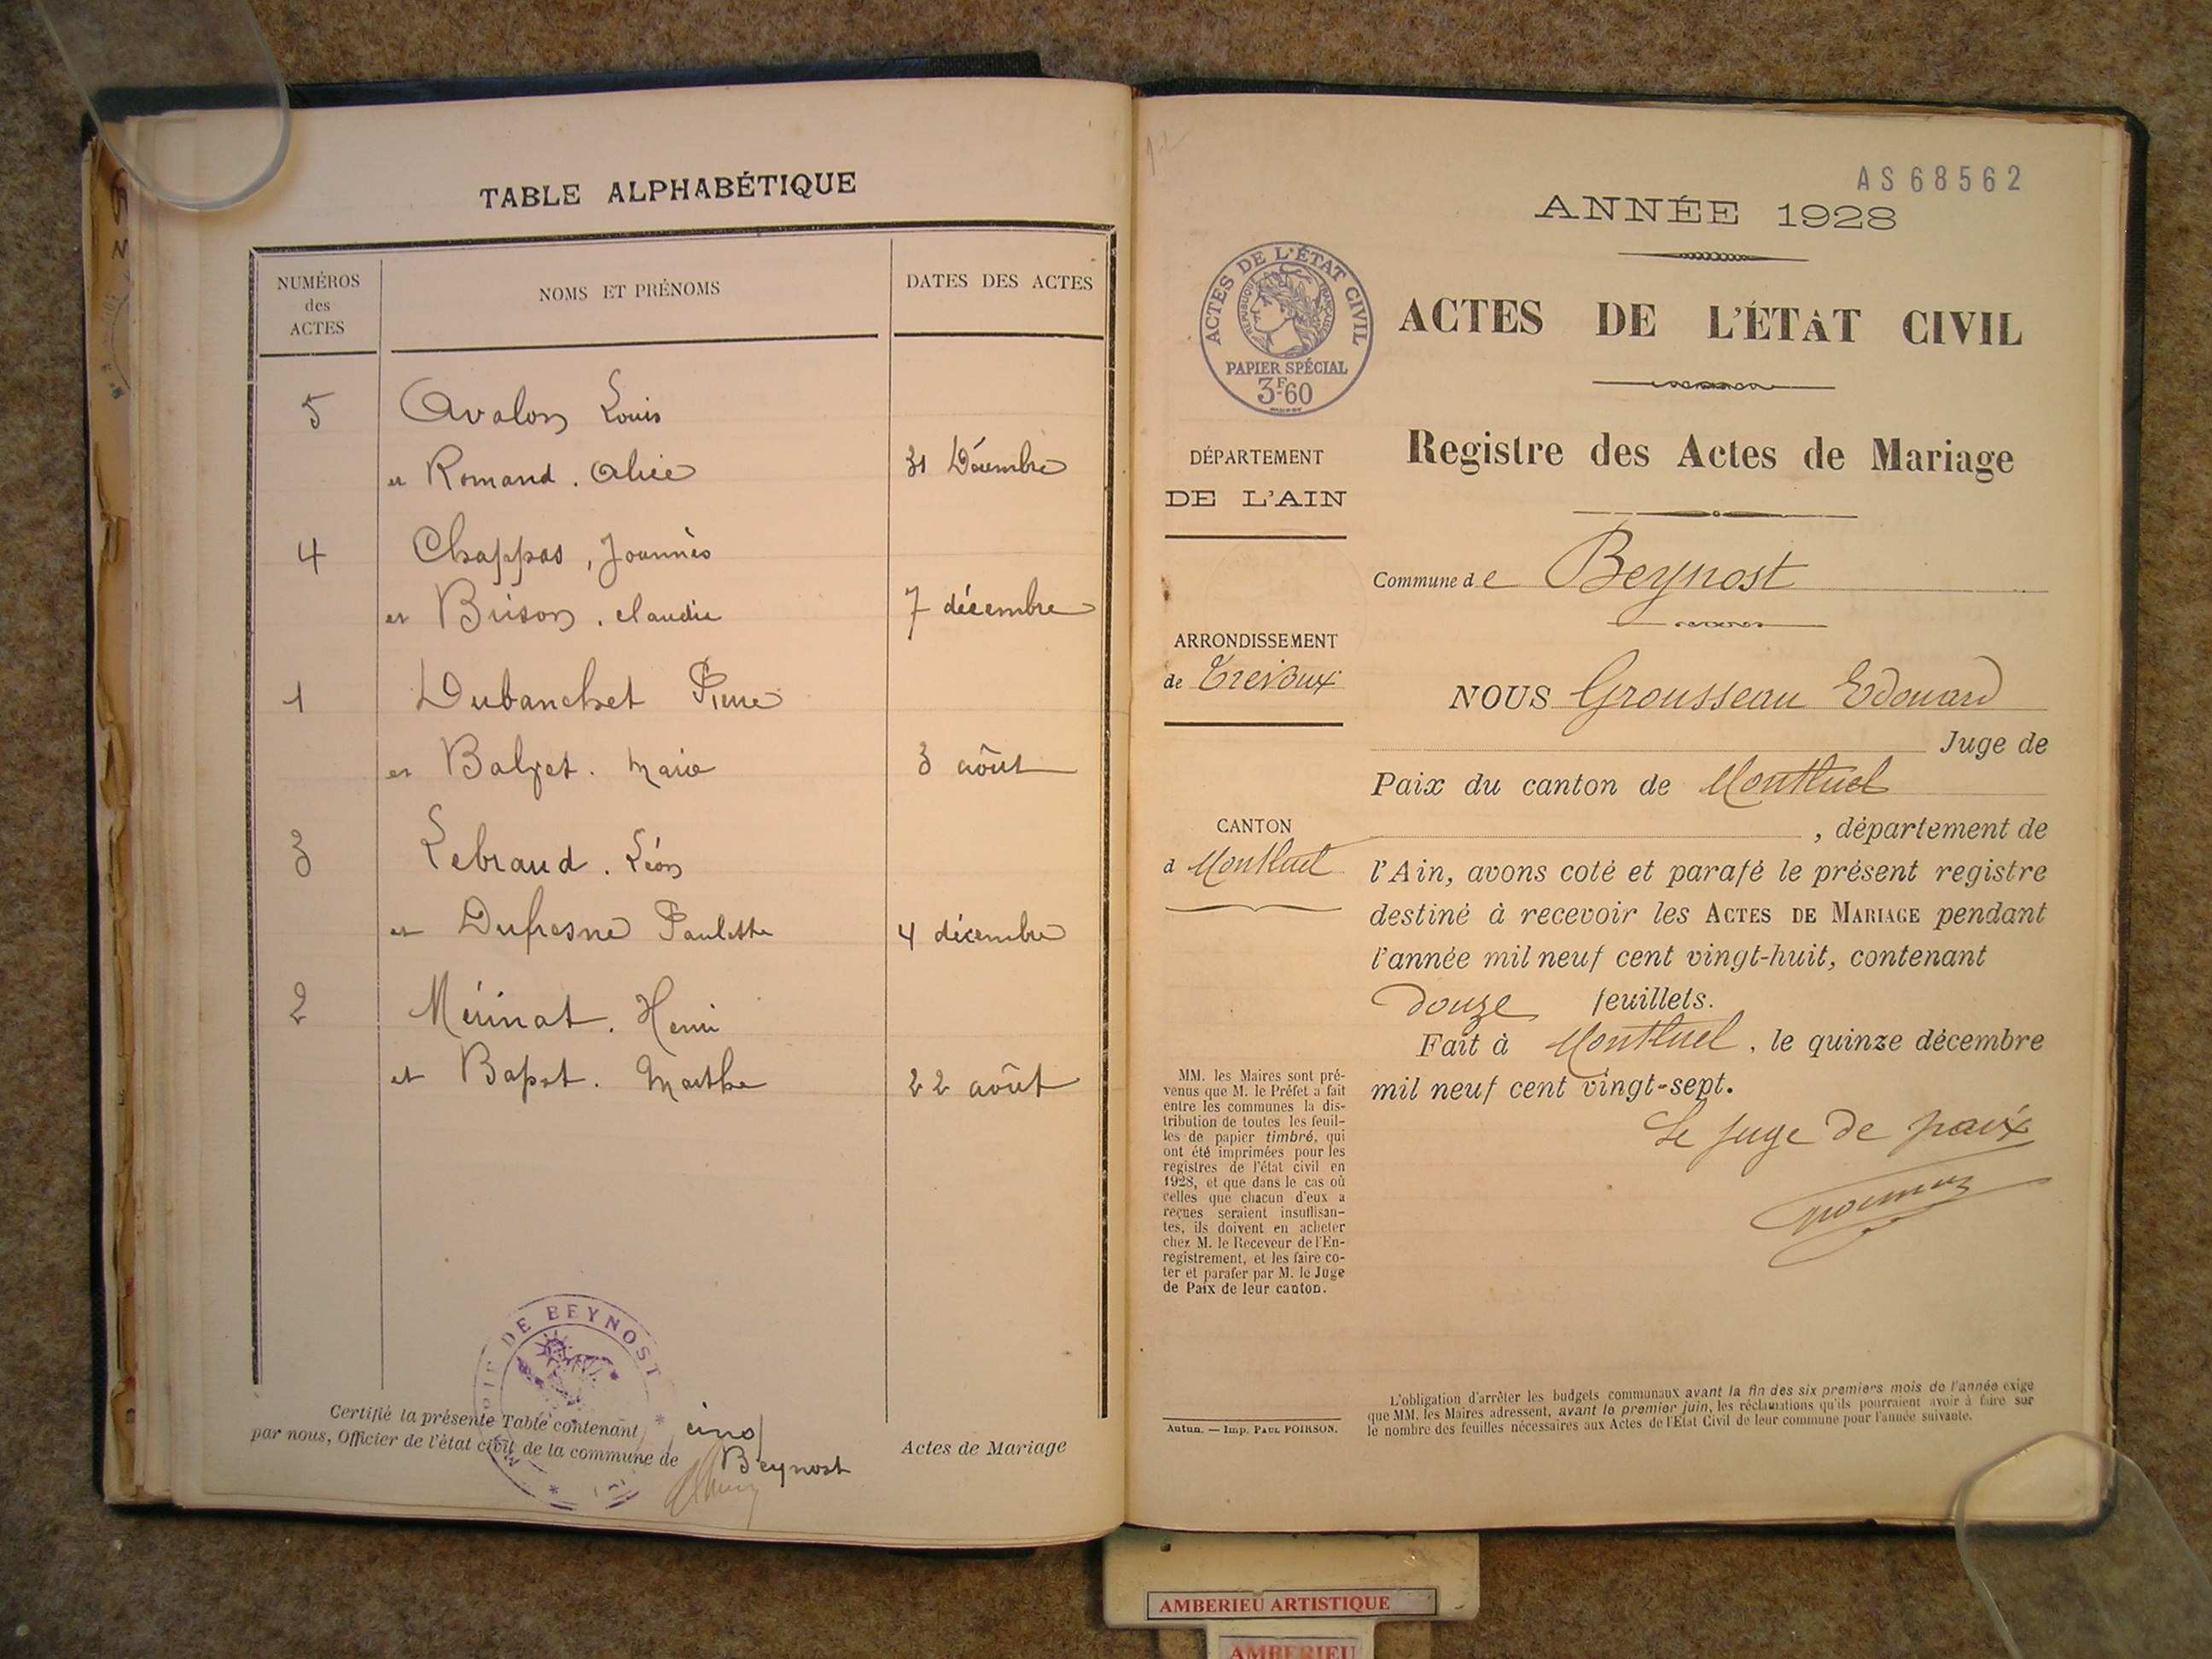 TABLE ALPHABÉTIQUE
NUMÉROS
des
ACTES
NOMS ET PRÉNOMS
DATES DES ACTES
5 Avalon Louis
et Romand. Alice 31 Décembre
4 Chappas, Joannès
et Brison. claudie 7 décembre
1 Dubanchet Pierre
et Balzet. Marie 3 aôut
3 Lebraud. Léon
et Dufresne Paulette 4 décembre
2 Mérinat. Henri
et Bapst. Marthe 22 août
DE BEYNOST
Certifié la présente Table contenant cinq Actes de Mariage
par nous, Officier de l'état civil de la commune de Beynost
AS68562
ANNÉE 1928
ACTES DE L'ÉTAT CIVIL
RÉPUBLIQUE FRANÇAISE
PAPIER SPÉCIAL
3F60
ACTES DE L'ÉTAT CIVIL
Registre des Actes de Mariage
DÉPARTEMENT
DE L'AIN
ARRONDISSEMENT
de Trévoux
CANTON
d Montluel
MM. les Maires sont pré-
venus que M. le Préfet a fait
entre les communes la dis-
tribution de toutes les feuil-
les de papier timbré, qui
ont été imprimées pour les
registres de l'état civil en
1928, et que dans le cas où
celles que chacun d'eux a
reçues seraient insuffisan-
tes, ils doivent en acheter
chez M. le Receveur de l'En-
registrement, et les faire co-
ter et parafer par M. le Juge
de Paix de leur canton.
Autun. — Imp. PAUL POIRSON.
Commune de Beynost
NOUS Grousseau Edouard
Juge de
Paix du canton de Montluel
, département de
l'Ain, avons coté et parafé le présent registre
destiné à recevoir les ACTES DE MARIAGE pendant
l'année mil neuf cent vingt-huit, contenant
douze feuillets.
Fait à Montluel, le quinze décembre
mil neuf cent vingt-sept.
Le juge de paix
L'obligation d'arrêter les budgets communaux avant la fin des six premiers mois de l'année exige
que MM. les Maires adressent, avant le premier juin, les réclamations qu'ils pourraient avoir à faire sur
le nombre des feuilles nécessaires aux Actes de l'Etat Civil de leur commune pour l'année suivante.
AMBERIEU ARTISTIQUE
AMBERIEU